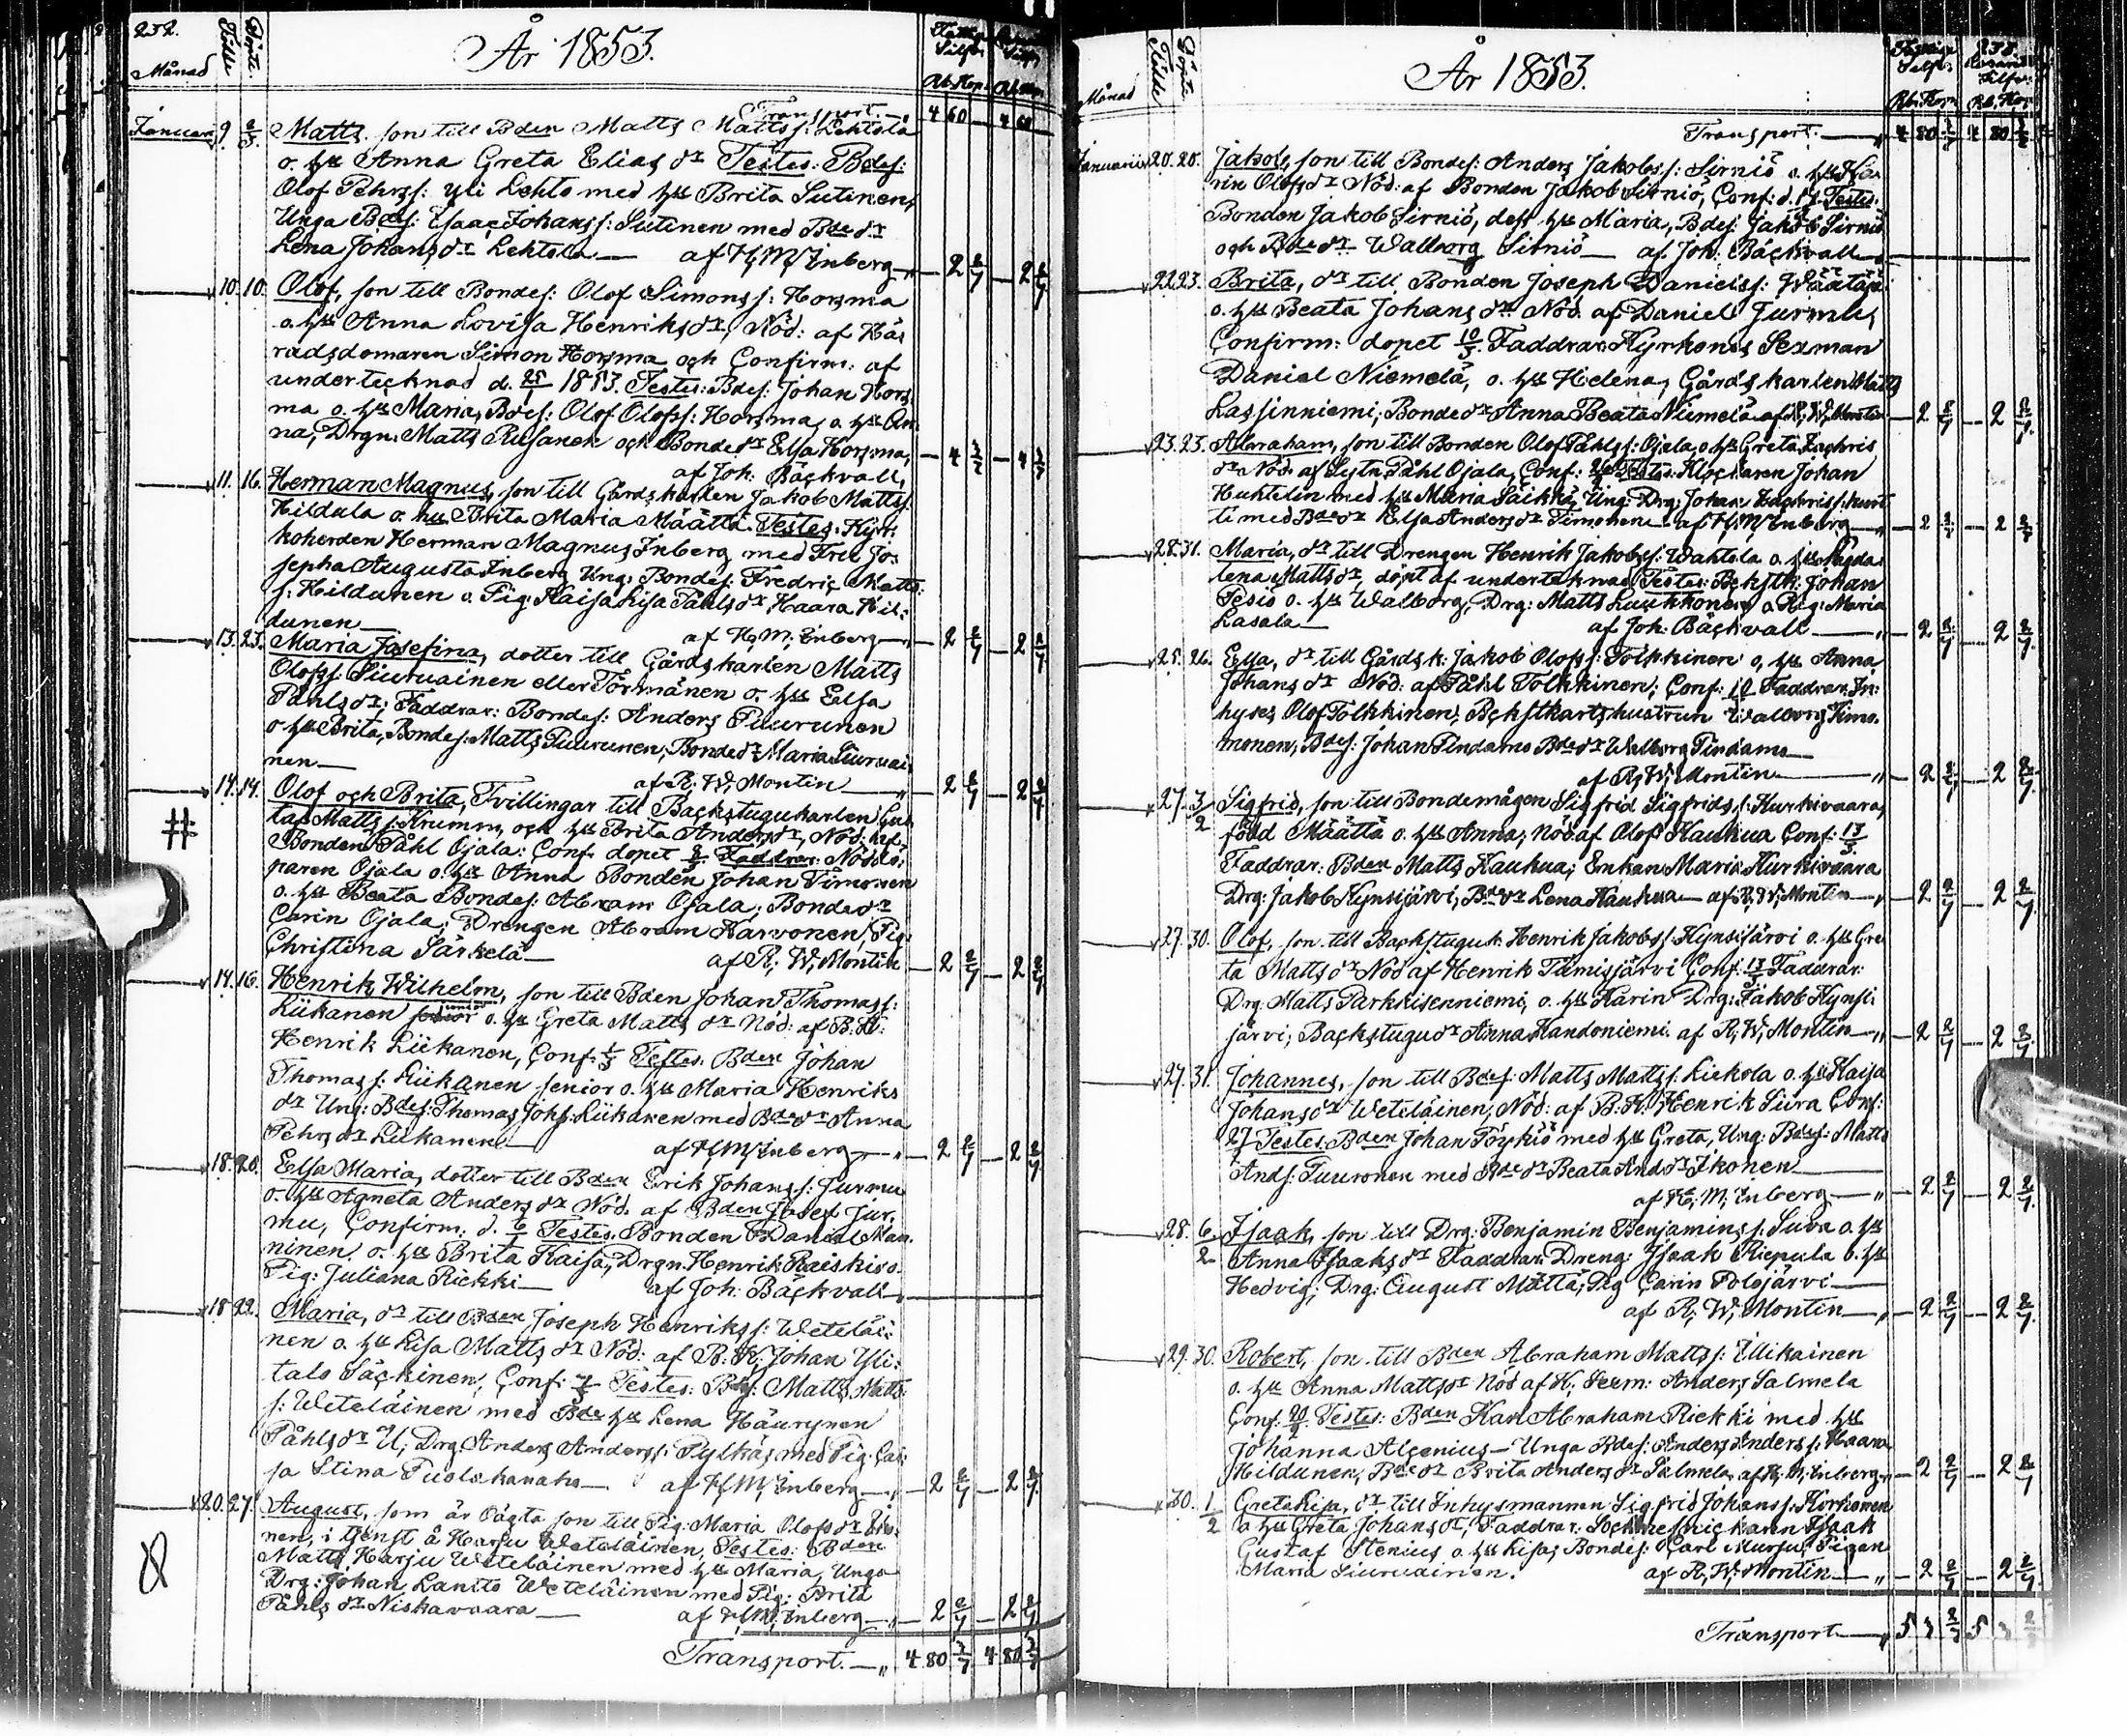 232.
År 1853.
Månad Födde Döpte. Silfv: Silfv:
Rb. Kop. Rb. Kop.
Transport. — 4 60 — 4 60
Januari 9. Matts, son till Bden Matts Mattss: Lehtola
o. hu Anna Greta Elias dr Testes: Bdes:
Olof Pehrss: Yli Lehto med hu Brita Sutinen,
Unga Bdes: Esaac Johanss: Sutinen med Bde dr
Lena Johans dr Lehtola — af H, M, Inberg — 2 2/7 — 2 2/7
10. 10. Olof, son till Bondes: Olof Simonss: Horsma
o. hu Anna Lovisa Henriks dr, Nöd: af Hä-
radsdomaren Simon Horsma och Confirm: af
undertecknad d. 25/1 1853. Testes: Bdes: Johan Hors
ma o. hu Maria, Bdes: Olof Olofss: Horsma, o. hu An
na, Drgn: Matts Rusanen och Bonde dr Elsa Horsma,
af Joh: Bäckvall,
11. 16. Herman Magnus, son till Gårdskarlen Jakob Mattss:
Hildula o. hu Brita Maria Määttä. Testes: Kyr:
koherden Herman Magnus Inberg med Fru Jo:
sepha Augusta Inberg, Ung: Bondes: Fredric Matts
s: Hildunen o. Pig: Kaisa Lisa Påhls dr Haara Hil:
dunen — af H, M, Inberg — 2 2/7 — 2 2/7
13. 23. Maria Josefina, dotter till Gårdskarlen Matts
Olofss: Siuruainen eller Törmänen o. hu Elsa
Påhls dr; Faddrar: Bondes: Anders Puurunen
o hu Brita, Bondes: Matts Puurunen, Bonde dr Maria Siuruai
nen — af R, W, Montin — 2 2/7 — 2 2/7
14. 14. Olof och Brita, Tvillingar till Backstugukarlen Gus
taf Mattss: Krumm, och hu Brita Anders dr, Nöd: af
Bonden Påhl Ojala: Conf: dopet Faddrar: Nöddö:
paren Ojala o. hu Anna Bonden Johan Timonen
o. hu Beata Bondes: Abram Ojala; Bonde dr
Carin Ojala; Drengen Abram Karvonen, Pig:
Christina Särkelä — af R, W, Montin — 2 2/7 — 2 2/7
14. 16. Henrik Wilhelm, son till Bden Johan Thomass:
Liikanen junior o. hu Greta Matts dr Nöd: af B. K:
Henrik Liikanen, Conf: Testes: Bden Johan
Thomass: Liikanen senior o. hu Maria Henriks
dr Ung: Bdes: Thomas Johs: Liikanen med Bde dr Anna
Pehrs dr Liikanen — af H, M, Inberg — 2 2/7 — 2 2/7
18. 20. Elsa Maria, dotter till Bden Erik Johanss: Jurmu
o. hu Agneta Anders dr Nöd. af Bden Josef Jur:
mu, Confirm: d. Testes: Bonden Daniel Man
ninen, o. hu Brita Kaisa, Drgn: Henrik Raiskio o.
Pig: Juliana Riekki — af Joh: Bäckvall —
18 22. Maria, dr till Bden Joseph Henrikss: Weteläi:
nen o. hu Lisa Matts dr Nöd: af B: K: Johan Yli:
talo Säckinen, Conf: Testes: Bdes: Matts Matts
s: Weteläinen med Bde hu Lena Häurynen
Påhls dr U, Drg. Anders Anderss: Pylkäs med Pig: Cai:
sa Stina Tuolokanaho — af H, M, Inberg — 2 2/7 — 2 2/7
20. 27. August, som är Oägta son till Pig: Maria Olofs dr
nen, i tjenst å Harju Weteläinen, Testes: Bden
Matts Harju Weteläinen med hu Maria, Unga
Drg: Johan Lantto Weteläinen med Pig: Brita
Påhls dr Niskavaara — af H, M, Inberg — 2 2/7 — 2 2/7
Transport. — 4 80 4 80
År 1853.
233.
Månad Födde Döpte Silfv: Silfv:
Rb: Kop Rb. Kop
Transport. — 4 80 4 80
Januarii 20. 20. Jakob, son till Bondes: Anders Jakobss: Sirniö o. hu Ka
rin Olofs dr Nöd: af Bonden Jakob Sirniö, Conf: d. Testes:
Bonden Jakob Sirniö, dess hu Maria, Bdes: Jakob Sirniö
och Bde dr Walborg Sirniö — af Joh: Bäckvall —
22. 23. Brita, dr till Bonden Joseph Danielss: Väätäjä
o. hu Beata Johans dr Nöd. af Daniel Jurmu,
Confirm: dopet 10/3. Faddrar: Kyrkones Sexman
Daniel Niemelä, o. hu Helena, Gårdskarlen Matts
Lassinniemi; Bonde dr Anna Beata Niemelä af R, W, Montin — 2 2/7 — 2 2/7
23. 23. Abraham, son till Bonden Olof Påhlss: Ojala, o. hu Greta Zachris
dr Nöd af Påhl Ojala, Conf: Testes: Klockaren Johan
Huhtelin med hu Maria Saikki, Ung: Drg: Johan Zachriss: Kurt
ti med Bde dr Elsa Anders dr Timonen — af H, M, Inberg — 2 2/7 — 2 2/7
28. 31. Maria, dr till Drengen Henrik Jakobss: Wahtola o. hu Magda
lena Matts dr, döpt af undertecknad Testes: Bckstk: Johan
Pesiö o. hu Walborg, Drg: Matts Luukkonen o Pig: Maria
Lasala — af Joh: Bäckvall — 2 2/7 — 2 2/7
25. 26. Elsa, dr till Gårdsk: Jakob Olofss: Tolkkinen o, hu Anna
Johans dr Nöd: af Påhl Tolkkinen; Conf: Faddrar: In:
hyses Olof Tolkkinen, Bckstkarlshustrun Walborg Timo.
monen, Bdes: Johan Pindamo Bde dr Walborg Pindamo —
af R, W, Montin — 2 2/7 — 2 2/7
27. 3/2 Sigfrid, son till Bondemågen Sigfrid Sigfridss: Kurkivaara,
född Määttä o. hu Anna; Nöd af Olof Kauhua Conf: 13/3.
Faddrar: Bden Matts Kauhua; Enkan Maria Kurkivaara
Drg: Jakob Kynsijärvi, Bde dr Lena Kauhua — af R, W, Montin — 2 2/7 — 2 2/7
27. 30. Olof, son till Backstuguk: Henrik Jakobss: Kynsijärvi o. hu Gre
ta Matts dr Nöd af Henrik Tamisjärvi Conf: 13/3 Faddrar:
Drg: Matts Parkkisenniemi, o. hu Karin Drg: Jakob Kynsi:
järvi; Backstugu dr Anna Kandoniemi. af R, W, Montin — 2 2/7 — 2 2/7
27. 31. Johannes, son till Bdes: Matts Mattss: Liekola o. hu Kaisa
Johans dr Weteläinen, Nöd: af B. K: Henrik Siira Conf:
Testes: Bden Johan Pöykiö med hu Greta, Ung: Bdes: Matts
Ands: Tuuronen med Bde dr Beata And dr Ikonen —
af H, M, Inberg — 2 2/7 — 2 2/7
28. 6/2 Isaak, son till Drg: Benjamin Benjaminss: Suva o. hu
Anna Isaaks dr Faddrar: Dreng: Isaak Riepula o. hu
Hedvig; Drg: August Mättä, Pig Carin Polojärvi —
af R, W, Montin — 2 2/7 — 2 2/7
29. 30. Robert, son till Bden Abraham Mattss: Illikainen
o. hu Anna Matts dr Nöd af K: Sexm: Anders Salmela
Conf: 20/2. Testes: Bden Karl Abraham Riekki med hu
Johanna Alcenius — Unga Bdes: Anders Anderss: Haara
Hildunen, Bde dr Brita Anders dr Salmela, af H, M, Inberg — 2 2/7 — 2 2/7
30. 1/2 Greta Lisa, dr till Inhysmannen Sigfrid Johanss: Korhonen
o hu Greta Johans dr, Faddrar: Isaak
Gustaf Stenius o. hu Lisa, Bondes: Carl Murju, Pigan
Maria Siuruainen. af R, W, Montin — 2 2/7 — 2 2/7
Transport — 5